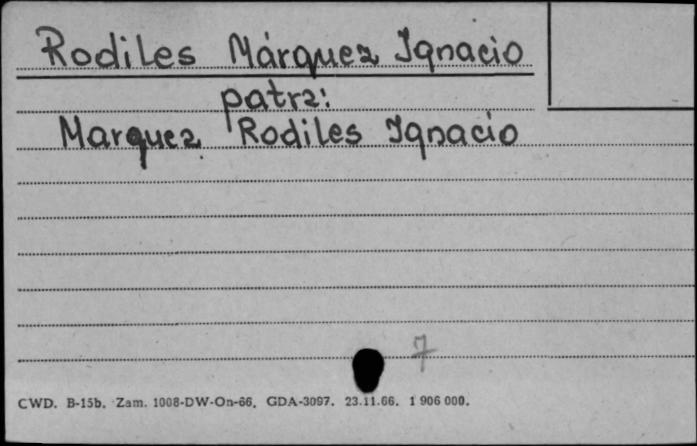 Rodiles Márquez Ignacio
patrz:
Marquez Rodiles Ignacio
7
CWD. B-15b. Zam. 1008-DW-On-66. GDA-3097. 23.11.66. 1 906 000.